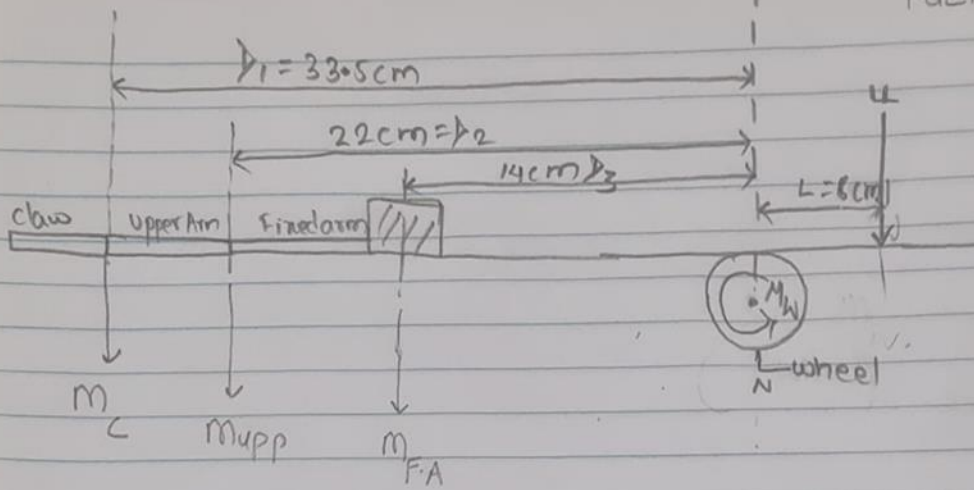 D₁ = 33.5cm
22cm = D₂
14cm D₃
L = 8cm
claw
upper Arm
Fixedarm
M_W
wheel
N
M_C
Mupp
M_F.A